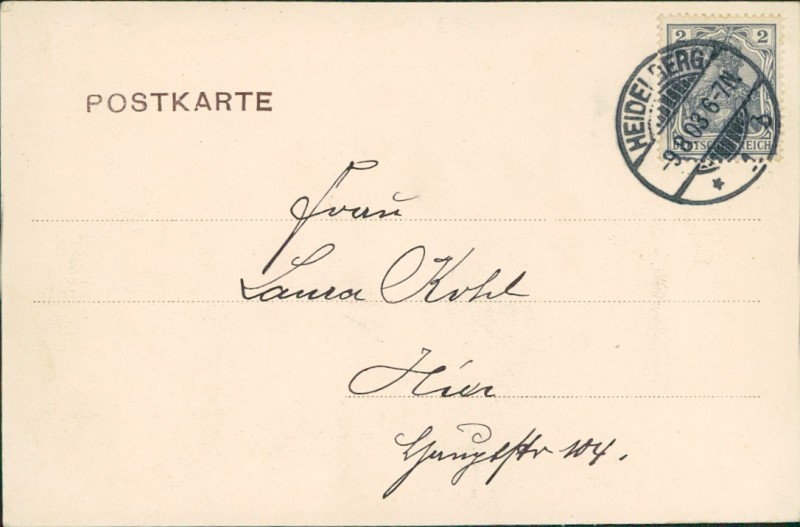 2
2
DEUTSCHES REICH
HEIDELBERG
9.8.03 6-7N.
* 1 g
POSTKARTE
Frau
Laura Kohl
Hier
Hauptstr 104.